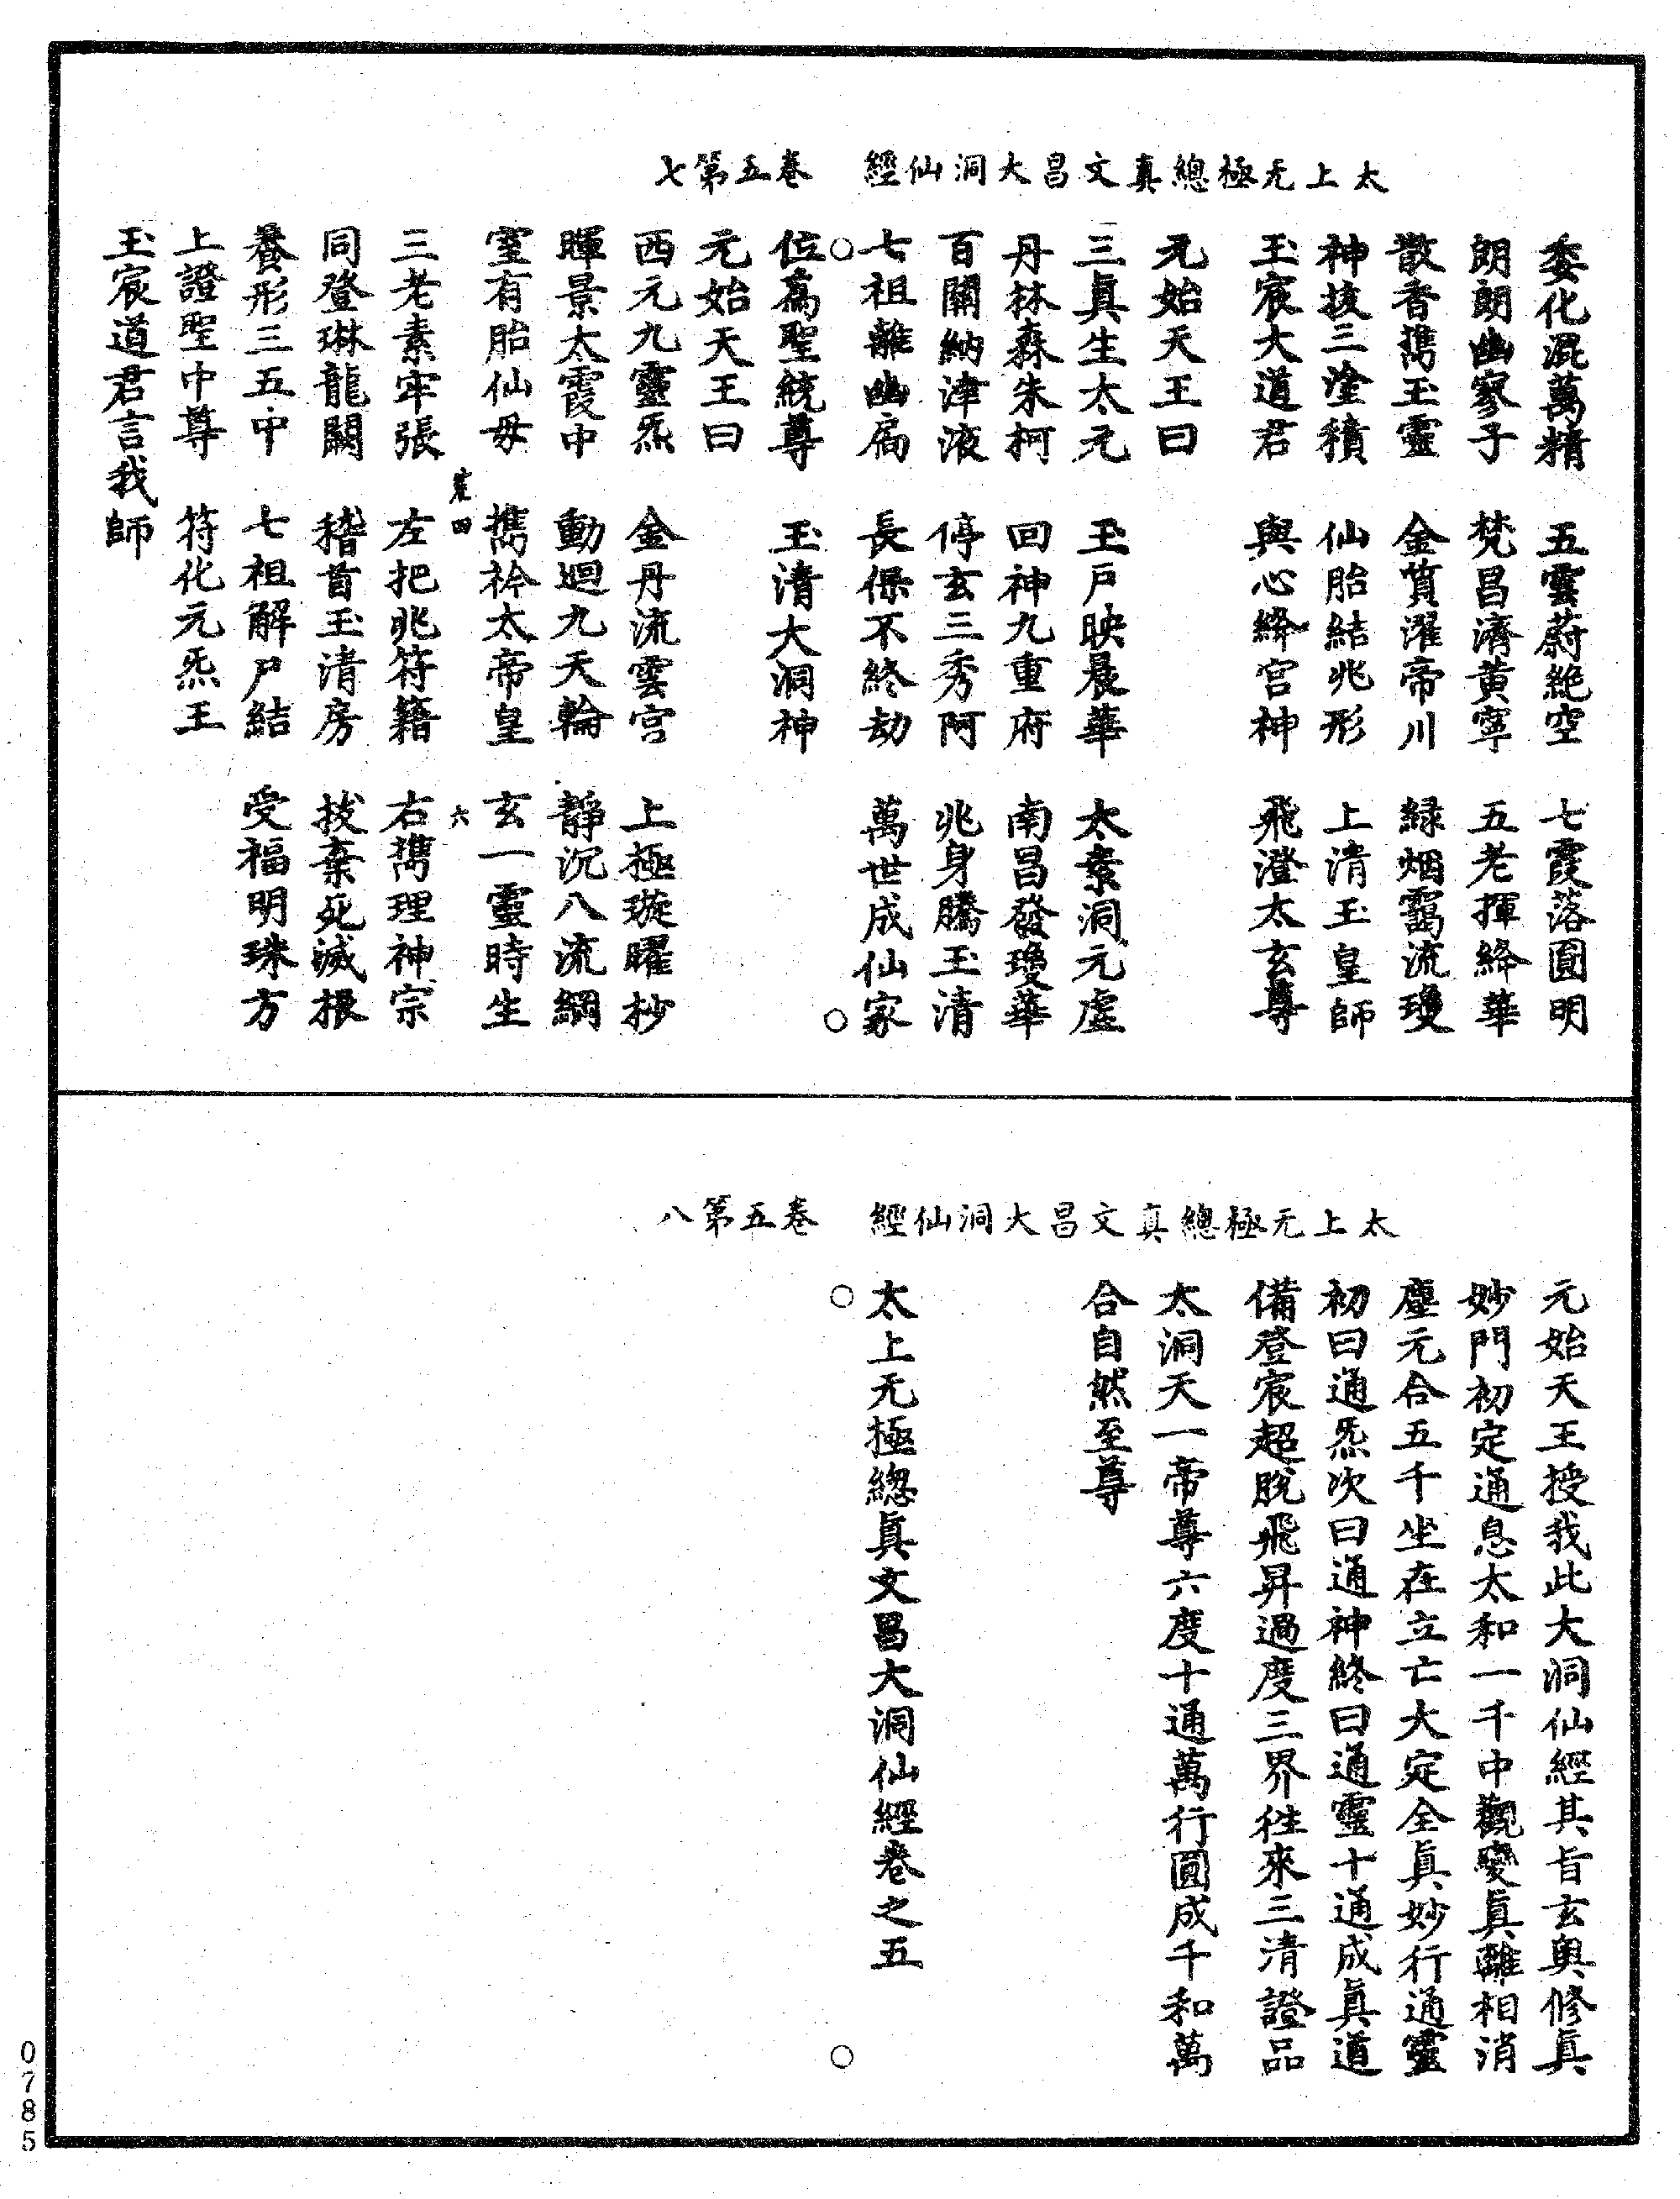 太上无極總真文昌大洞仙經　卷五第七
委化混萬精　五雲蔚絶空　七霞落圓明
朗朗幽寥子　梵昌濟黄寧　五老揮絳華
散香攜玉靈　金質濯帝川　緑烟靄流瓊
神拔三塗積　仙胎結兆形　上清玉皇師
玉宸大道君　與心絳宫神　飛澄太玄尊
元始天王曰
三真生太元　玉戸映晨華　太素洞元虚
丹林森朱柯　回神九重府　南昌發瓊華
百關納津液　停玄三秀阿　兆身騰玉清
七祖離幽扃　長保不終劫　萬世成仙家
位爲聖統尊　玉清大洞神
元始天王曰
西元九靈炁　金丹流雲宫　上極璇曜杪
暉景太霞中　動迴九天輪　靜沉八流綱
室有胎仙母　攜衿太帝皇　玄一靈時生
荒四　六
三老素牢張　左把兆符籍　右攜理神宗
同登琳龍闕　稽首玉清房　拔棄死滅根
養形三五中　七祖解尸結　受福明珠方
上證聖中尊　符化元炁王
玉宸道君言我師
太上无極總真文昌大洞仙經　卷五第八
元始天王授我此大洞仙經其旨玄奥修真
妙門初定通息太和一千中觀變真離相消
塵元合五千坐在立亡大定全真妙行通靈
初曰通炁次曰通神終曰通靈十通成真道
備登宸超脱飛昇過度三界徃來三清證品
太洞天一帝尊六度十通萬行圓成千和萬
合自然至尊
太上无極總真文昌大洞仙經卷之五
0785